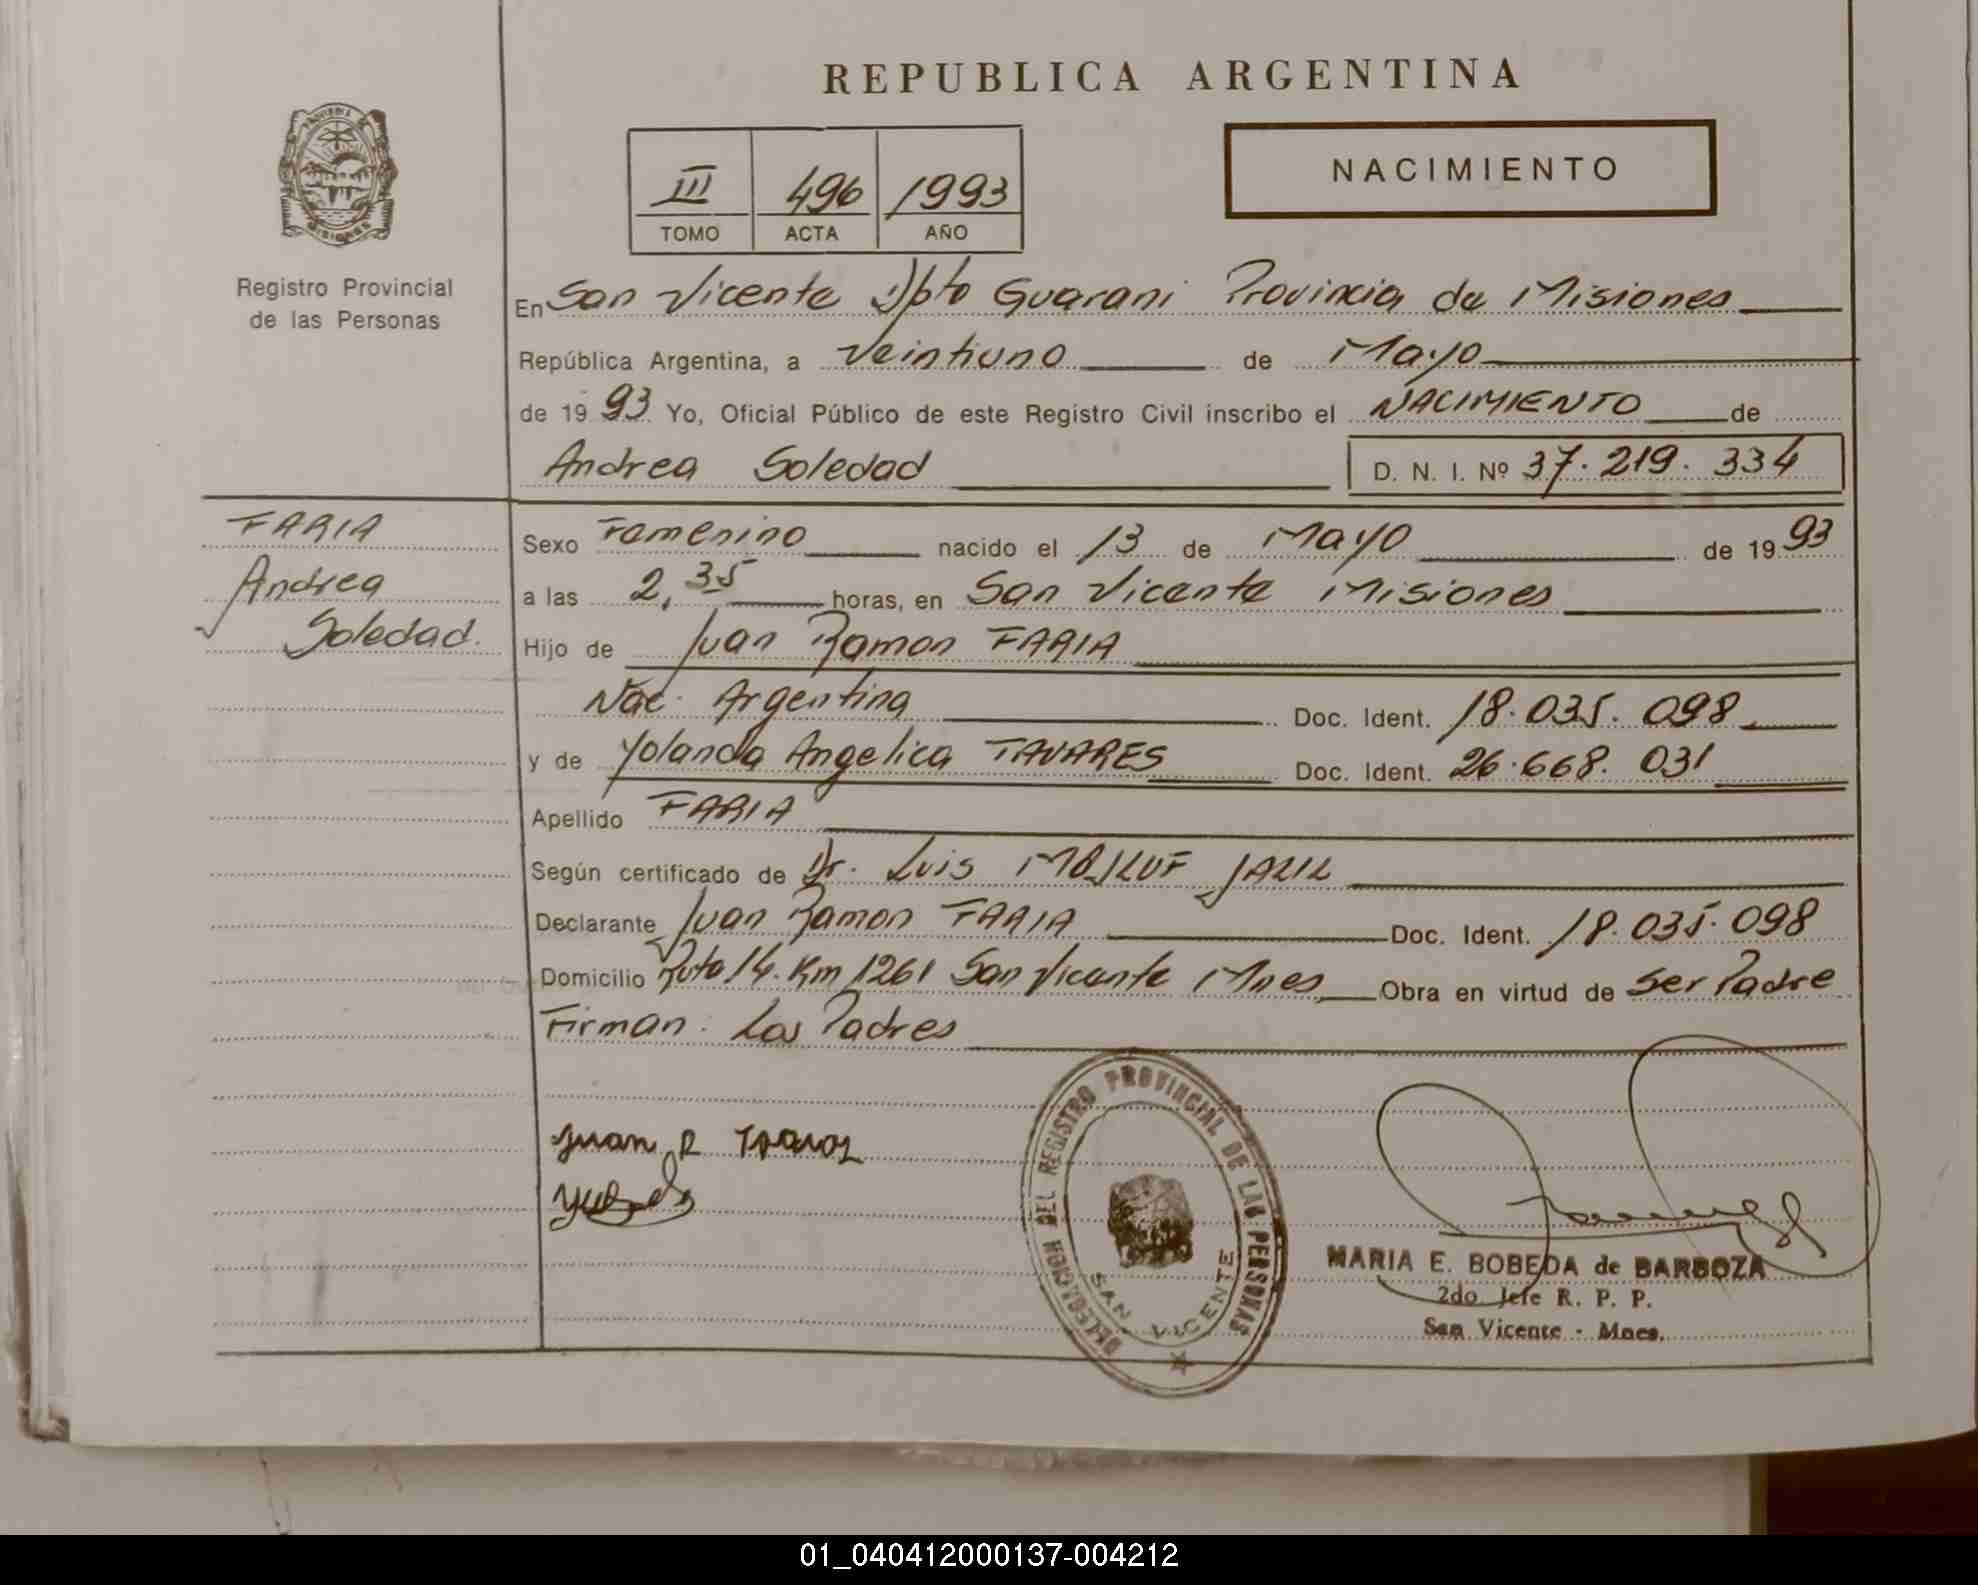 REPUBLICA ARGENTINA
NACIMIENTO
III 496 1993
TOMO ACTA AÑO
PROVINCIA DE MISIONES
Registro Provincial
de las Personas
En San Vicente Dpto Guarani Provincia de Misiones
República Argentina, a veintiuno de Mayo
de 1993 Yo, Oficial Público de este Registro Civil inscribo el NACIMIENTO de
Andrea Soledad D. N. I. Nº 37.219.334
FARIA
Andrea
Soledad.
Sexo Femenino nacido el 13 de Mayo de 1993
a las 2,35 horas, en San Vicente Misiones
Hijo de Juan Ramon FARIA
Nac. Argentina Doc. Ident. 18.035.098
y de Yolanda Angelica TAVARES Doc. Ident. 26.668.031
Apellido FARIA
Según certificado de Dr. Luis JALIL
Declarante Juan Ramon FARIA Doc. Ident. 18.035.098
Domicilio Ruta 14. Km 1261 San Vicente Mnes Obra en virtud de Ser Padre
Firman: Los Padres
Juan R
DELEGACION DEL REGISTRO PROVINCIAL DE LAS PERSONAS
SAN VICENTE
MARIA E. BOBEDA de BARBOZA
2do Jefe R. P. P.
San Vicente - Mnes.
01_040412000137-004212